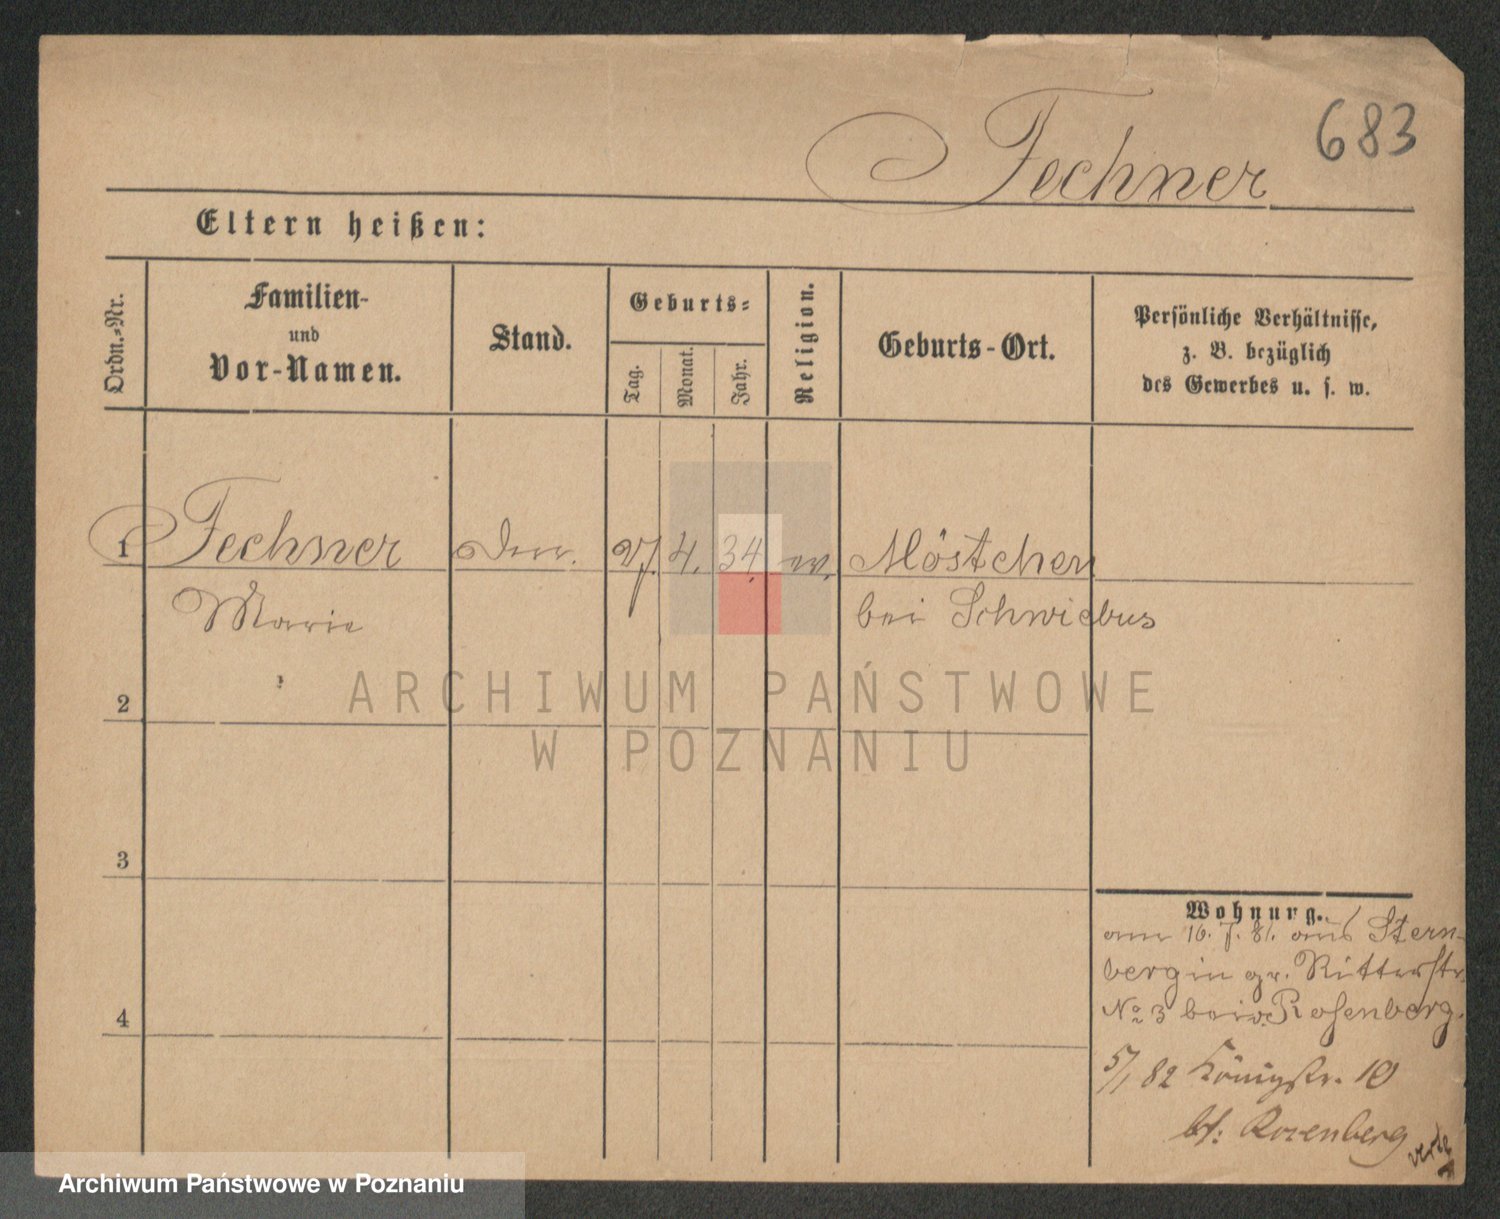 683
Fechner
Eltern heißen:
Ordn.-Nr.
Familien-
und
Vor-Namen.
Stand.
Geburts-
Tag.
Monat.
Jahr.
Religion.
Geburts-Ort.
Persönliche Verhältnisse,
z. B. bezüglich
des Gewerbes u. s. w.
1 Fechner 27. 4. 34. ev. Möstchen
Marie bei Schwiebus
2
3
4
Wohnung.
am 16. 7. 81. aus Stern-
berg in gr. Ritterstr.
No 3 bei v. Rosenberg.
5/1 82 Königstr. 10
bei Rosenberg
ARCHIWUM PAŃSTWOWE
W POZNANIU
Archiwum Państwowe w Poznaniu